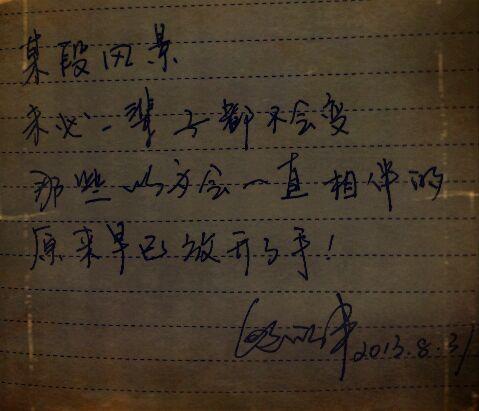 某段风景
未必一辈子都不会变
那些以为会一直相伴的
原来早已放开了手！
2013.8.31